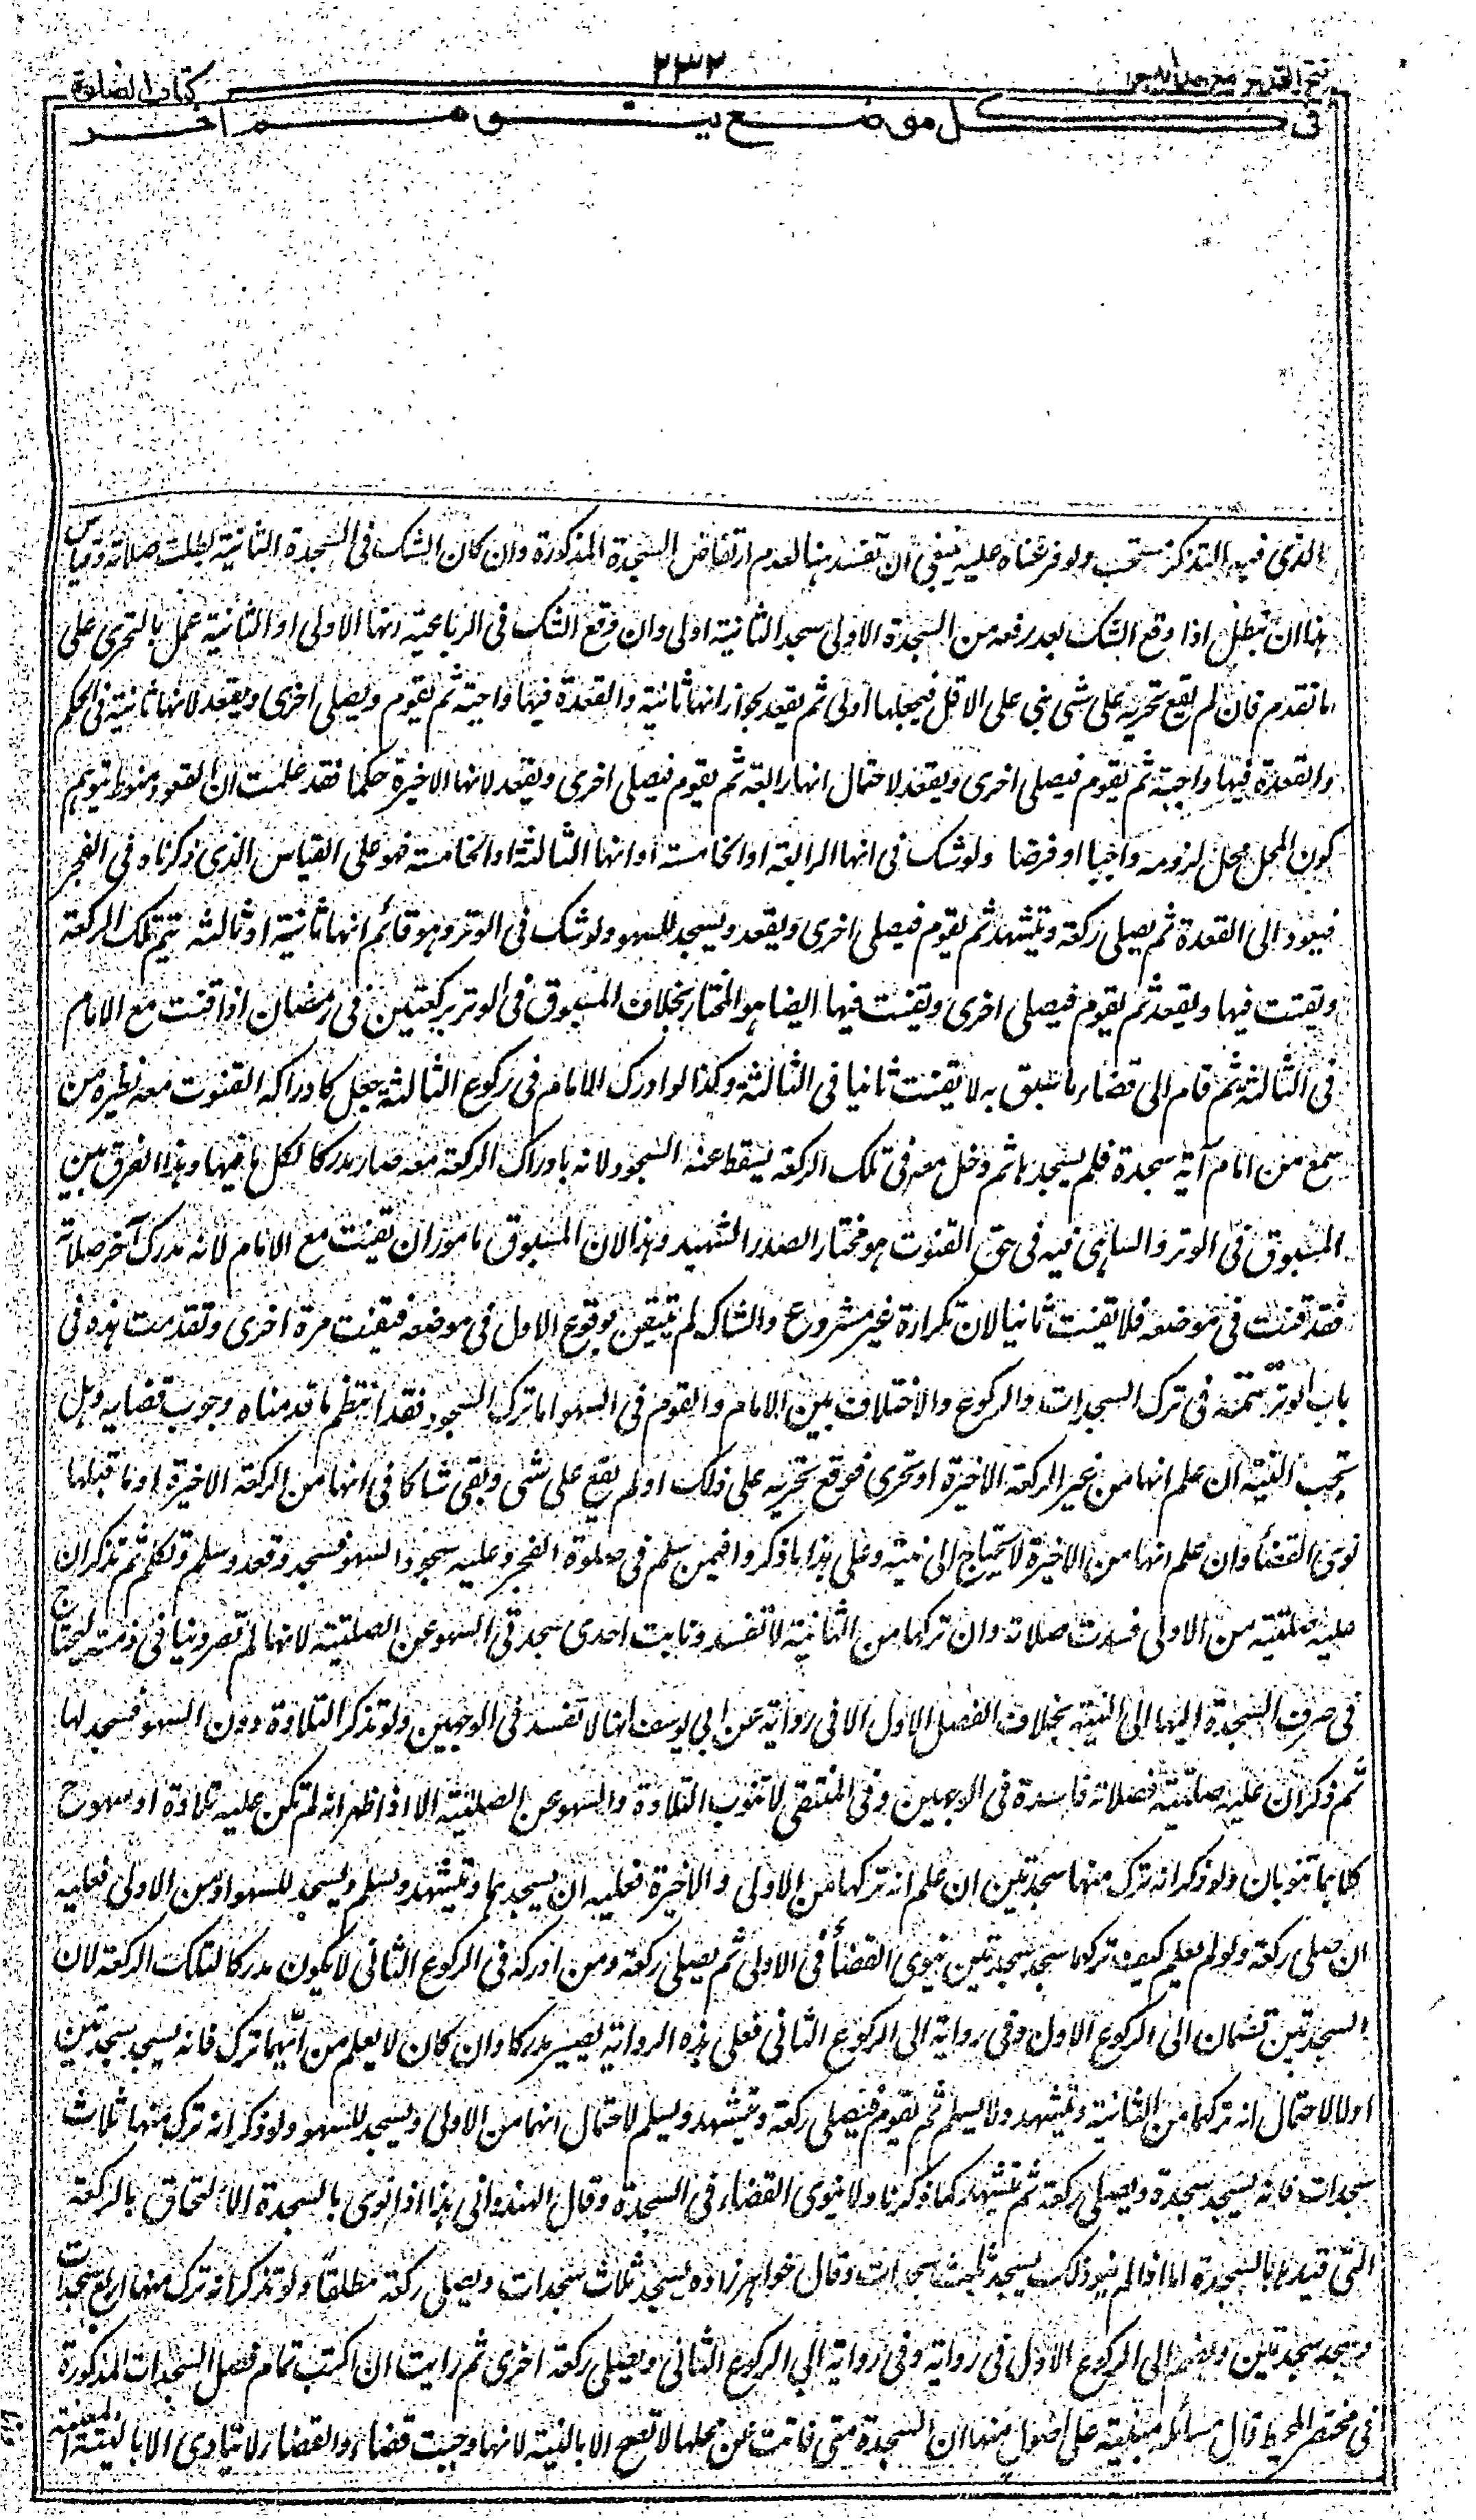 فتح القدير مع هداية
٢٣٢
كتاب الصلوة
فى كل موضع يتوهم اخر
الذى فيه التذكر مستحب ولو فرعناه عليه ينبغى ان تفسد هنا لعدم ارتفاض السجدة المذكورة وان كان الشك فى السجدة الثانية بطلت صلاته وقياس
هذا ان تبطل اذا وقع الشك بعد رفعه من السجدة الاولى سجد الثانية اولى وان وقع الشك فى الرباعية انها الاولى او الثانية عمل بالتحرى على
ما تقدم فان لم يقع تحريه على شى بنى على الاقل فيجعلها اولى ثم يقعد لجواز انها ثانية والقعدة فيها واجبة ثم يقوم ويصلى اخرى ويقعد لانها ثانية فى الحكم
والقعدة فيها واجبة ثم يقوم فيصلى اخرى ويقعد لاحتمال انها رابعة ثم يقوم فيصلى اخرى ويقعد لانها الاخيرة حكما فقد علمت ان القعود منوط بتوهم
كون المحل محل لزومه واجبا او فرضا ولو شك فى انها الرابعة او الخامسة او انها الثالثة او الخامسة فهو على القياس الذى ذكرناه فى الفجر
فيعود الى القعدة ثم يصلى ركعة ويتشهد ثم يقوم فيصلى اخرى ويقعد ويسجد للسهو ولو شك فى الوتر وهو قائم انها ثانية او ثالثه يتم تلك الركعة
ويقنت فيها ويقعد ثم يقوم فيصلى اخرى ويقنت فيها ايضا هو المختار بخلاف المسبوق فى الوتر بركعتين فى رمضان اذا قنت مع الامام
فى الثالثة ثم قام الى قضاء ما سبق به لا يقنت ثانيا فى الثالثة وكذا لو ادرك الامام فى ركوع الثالثة يجعل كادراكه القنوت معه نظيره من
سمع من امام آية سجدة فلم يسجدها ثم دخل معه فى تلك الركعة يسقط عنه السجود لانه بادراك الركعة معه صار مدركا لكل ما فيها وهذا الفرق بين
المسبوق فى الوتر والساهى فيه فى حق القنوت هو مختار الصدر الشهيد وهذا لان المسبوق مامور ان يقنت مع الامام لانه مدرك آخر صلاته
فقد قنت فى موضعه فلا يقنت ثانيا لان تكراره غير مشروع والشاك لم يتيقن بوقوع الاول فى موضعه فيقنت مرة اخرى وتقدمت هذه فى
باب الوتر تتمة فى ترك السجدات والركوع والاختلاف بين الامام والقوم فى السهو اما ترك السجود فقد انتظم ما قدمناه وجوب قضايه وهل
تجب النية ان علم انها من غير الركعة الاخيرة او تحرى فوقع تحريه على ذلك او لم يقع على شى وبقى شاكا فى انها من الركعة الاخيرة او ما قبلها
نوى القضاء وان علم انها من الاخيرة لا يحتاج الى نية وعلى هذا ما ذكروا فيمن سلم فى صلوة الفجر وعليه سجود السهو فسجد وقعد وسلم وتكلم ثم تذكر ان
عليه صلبية من الاولى فسدت صلاته وان تركها من الثانية لا تفسد ونابت احدى سجدتى السهو عن الصلبية لانها لم تصر دينا فى ذمته ليحتاج
فى صرف السجدة اليها الى النية بخلاف الفصل الاول الا فى رواية عن ابى يوسف انها لا تفسد فى الوجهين ولو تذكر التلاوة دون السهو فسجد لها
ثم ذكر ان عليه صلبية فصلاته فاسدة فى الوجهين وفى المنتقى لا تنوب التلاوة والسهو عن الصلبية الا اذا ظهر انه لم تكن عليه تلاوة او سهو ح
كلاهما تنوبان ولو ذكر انه ترك منها سجدتين ان علم انه تركهما من الاولى والاخيرة فعليه ان يسجدهما ويتشهد ويسلم ويسجد للسهو او من الاولى فعليه
ان صلى ركعة ولو لم يعلم كيف تركهما سجد سجدتين ينوى القضاء فى الاولى ثم يصلى ركعة ومن ادركه فى الركوع الثانى لا يكون مدركا لتلك الركعة لان
السجدتين تضمان الى الركوع الاول وفى رواية الى الركوع الثانى فعلى هذه الرواية يصير مدركا وان كان لا يعلم من ايهما ترك فانه يسجد سجدتين
اولا لاحتمال انه تركهما من الثانية ويتشهد ولا يسلم ثم يقوم فيصلى ركعة ويتشهد ويسلم لاحتمال انهما من الاولى ويسجد للسهو ولو ذكر انه ترك منها ثلاث
سجدات فانه يسجد سجدة ويصلى ركعة ثم يتشهد كما ذكرنا ولا ينوى القضاء فى السجدة وقال الهندوانى هذا اذا نوى بالسجدة الالتحاق بالركعة
التى قيدها بالسجدة اما اذا لم ينو ذلك يسجد ثلث سجدات وقال خواهرزاده يسجد ثلاث سجدات ويصلى ركعة مطلقا ولو تذكر انه ترك منها اربع سجدات
يسجد سجدتين ويضم الى الركوع الاول فى رواية وفى رواية الى الركوع الثانى ويصلى ركعة اخرى ثم رايت ان اكتب تمام فصل السجدات المذكورة
فى مختصر المحيط قال مسائله مبنية على اصول منها ان السجدة متى فاتت عن محلها لا تصح الا بالنية لانها وجبت قضاء والقضاء لا يتادى الا بالنية المعينة